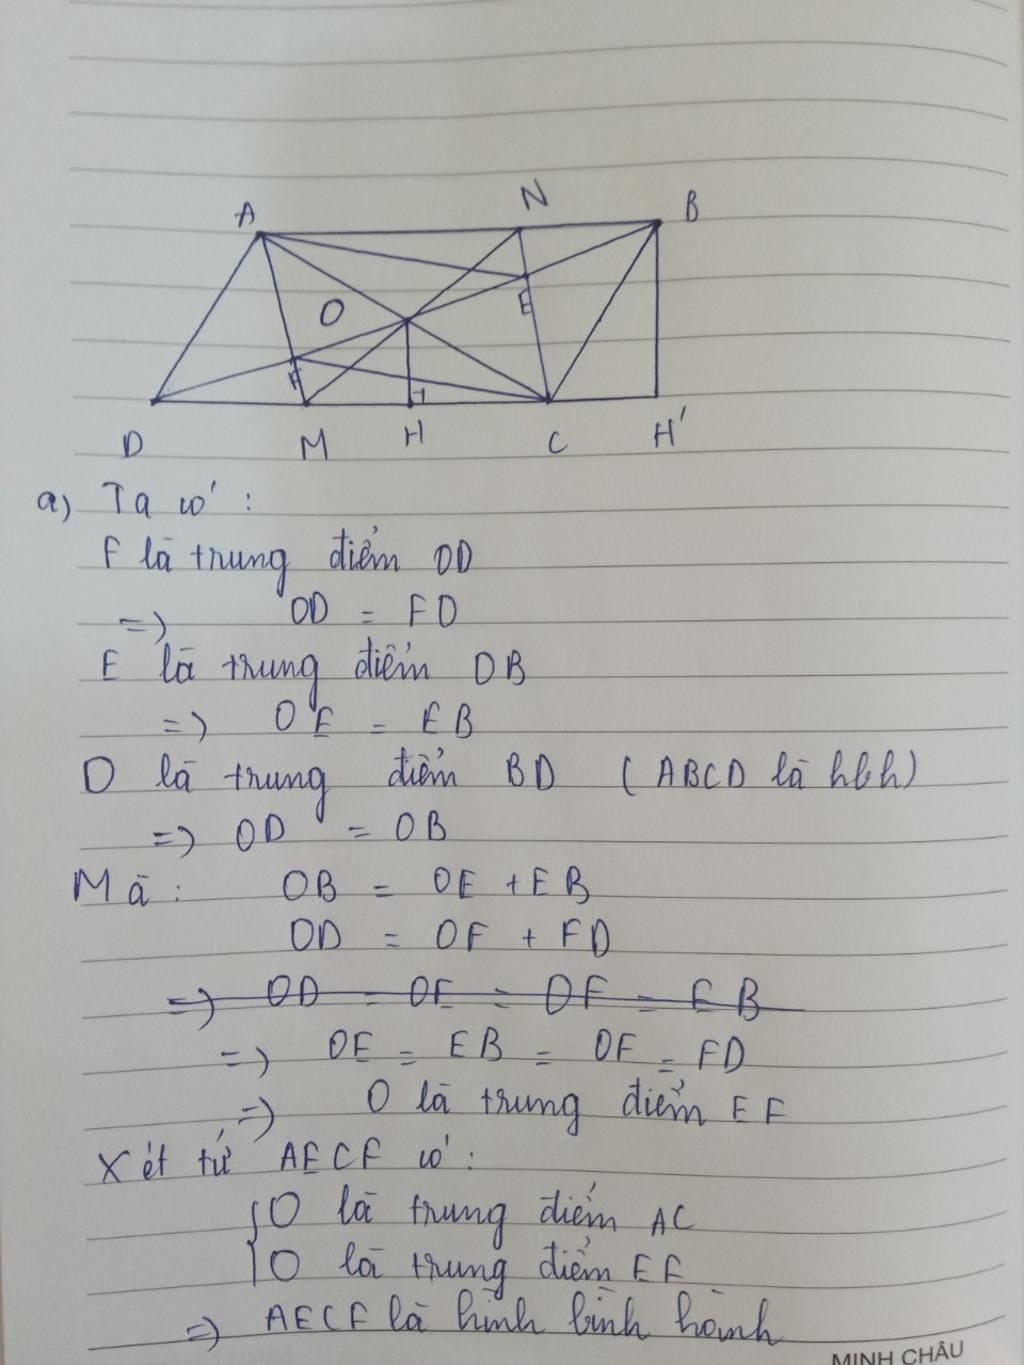 A
N
B
O
E
F
D
M
H
C
H'
a) Ta có :
F là trung điểm OD
=> OD = FD
E là trung điểm OB
=> OE = EB
O là trung điểm BD ( ABCD là hbh)
=> OD = OB
Mà : OB = OE + EB
OD = OF + FD
=> OD = OE = OF = EB
=> OE = EB = OF = FD
=> O là trung điểm EF
Xét tứ AECF có :
{ O là trung điểm AC
O là trung điểm EF
=> AECF là hình bình hành
MINH CHÂU